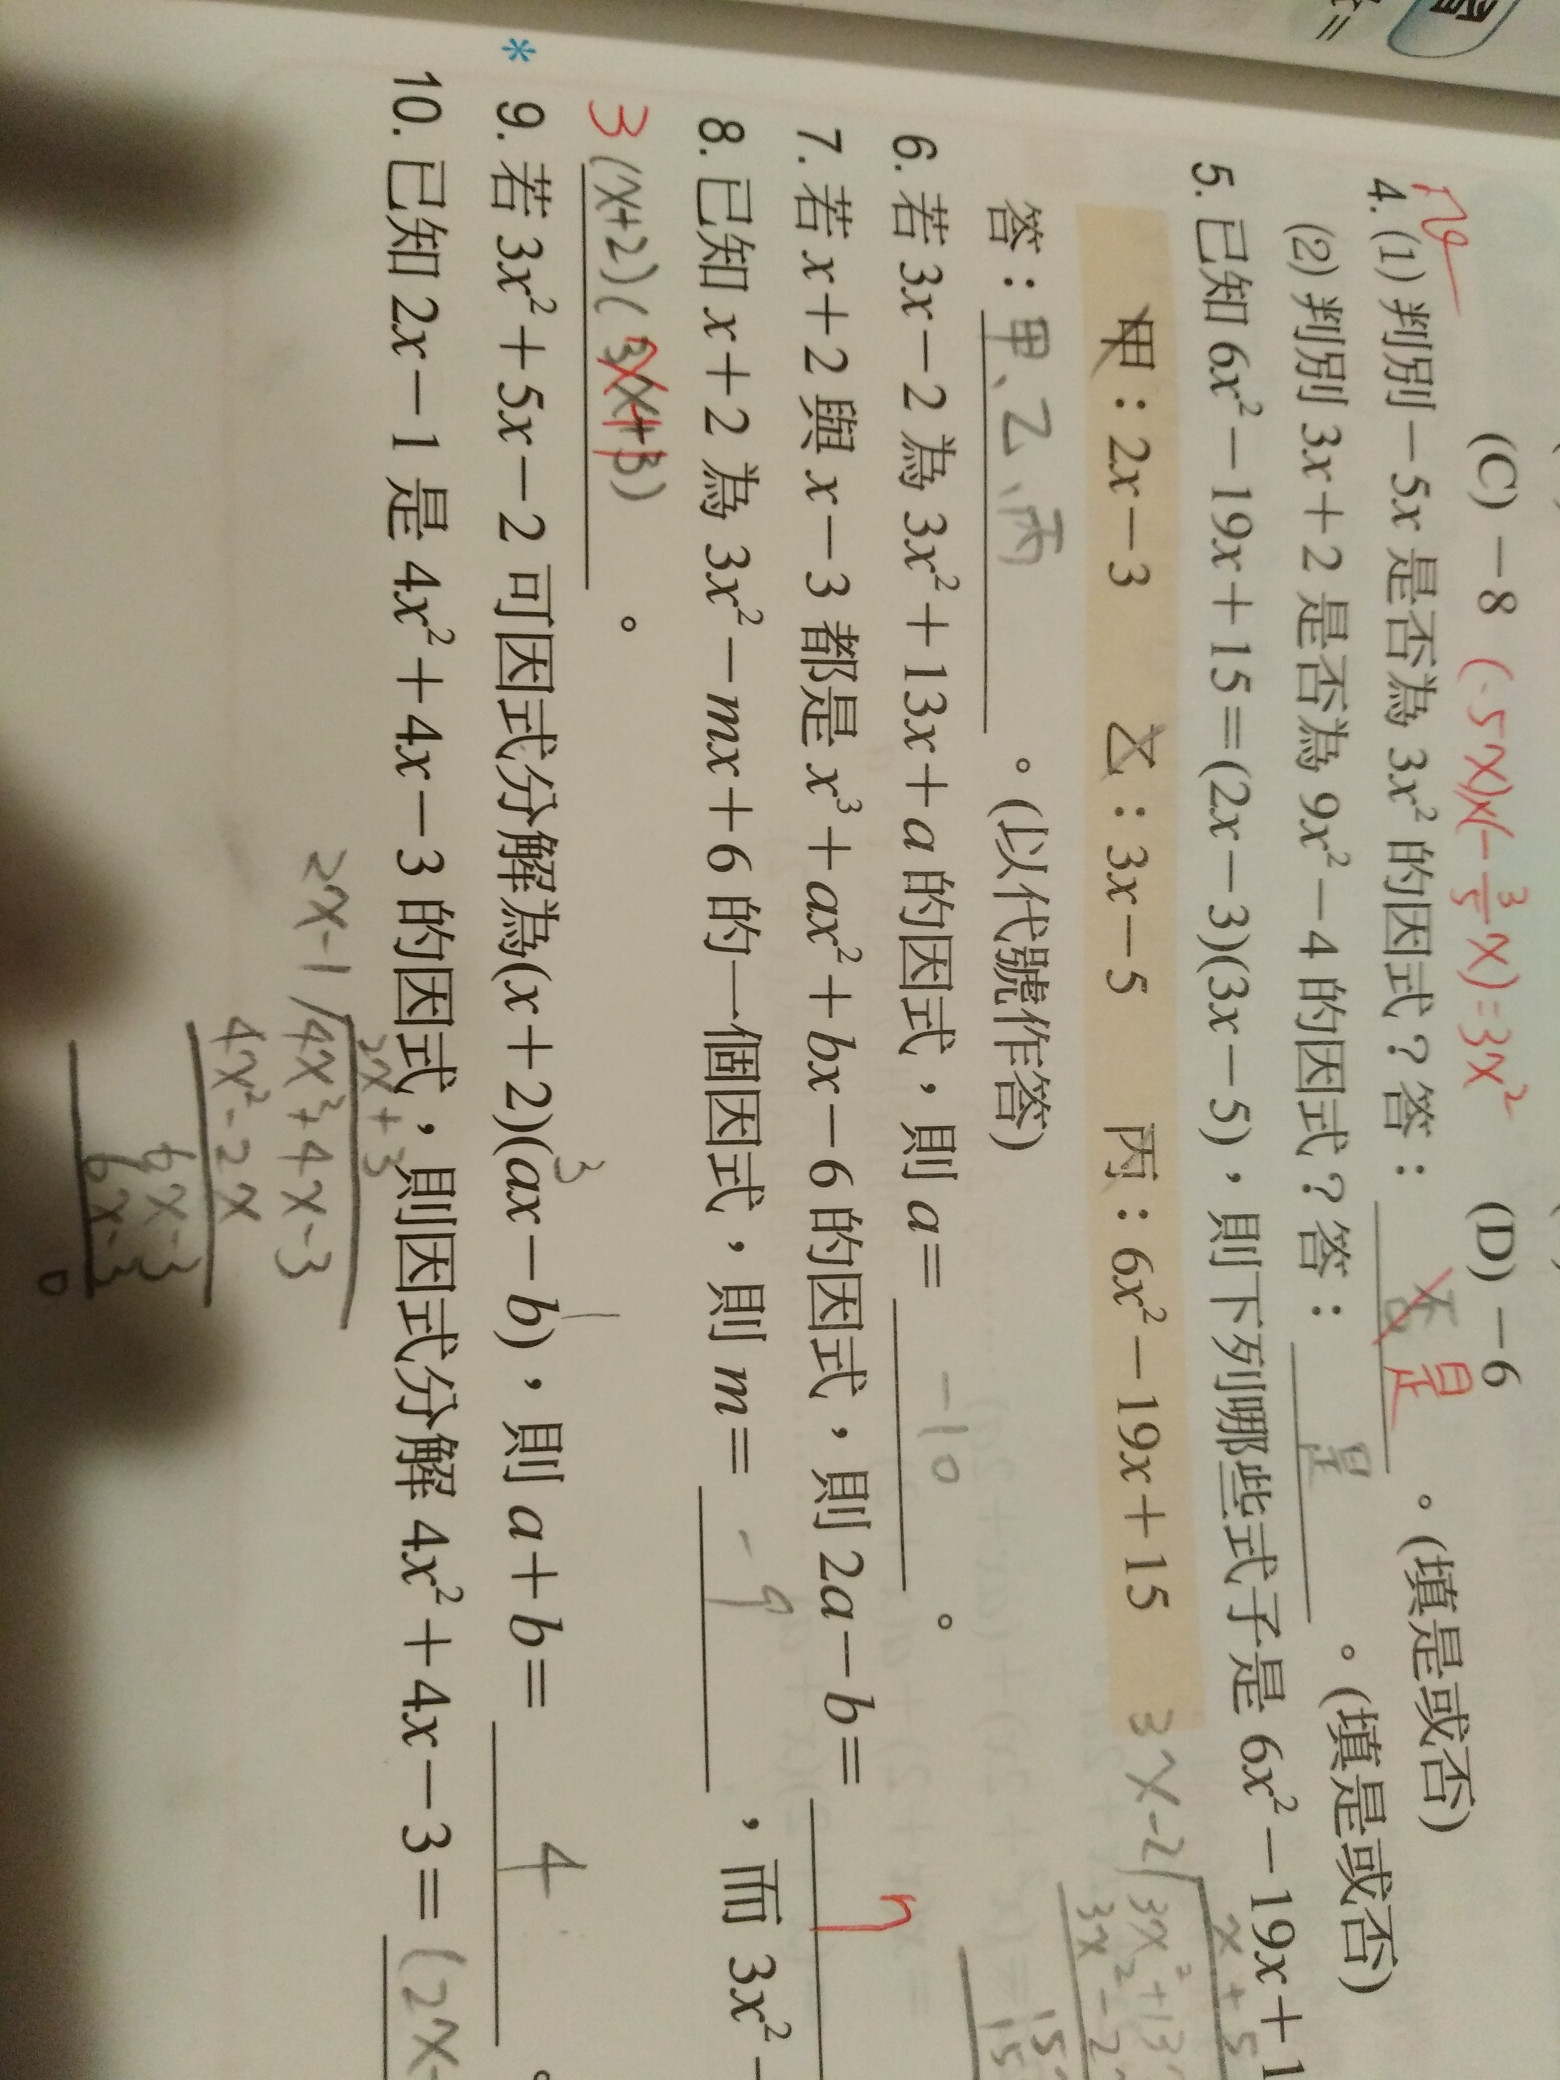 (C) －8 (-5x)×(-3/5x)=3x² (D) －6
4. (1) 判別－5x 是否為 3x² 的因式？答：否 是。(填是或否)
(2) 判別 3x＋2 是否為 9x²－4 的因式？答：是。(填是或否)
5. 已知 6x²－19x＋15＝(2x－3)(3x－5)，則下列哪些式子是 6x²－19x＋1
甲：2x－3 乙：3x－5 丙：6x²－19x＋15
答：甲、乙、丙。(以代號作答)
3x-2
x+5
3x²+13
3x²-2
15
15
6. 若 3x－2 為 3x²＋13x＋a 的因式，則 a＝-10。
7. 若 x＋2 與 x－3 都是 x³＋ax²＋bx－6 的因式，則 2a－b＝7
8. 已知 x＋2 為 3x²－mx＋6 的一個因式，則 m＝-9，而 3x²－
3(x+2)(x+1)。
* 9. 若 3x²＋5x－2 可因式分解為(x＋2)(ax－b)，則 a＋b＝4。
3 1
10. 已知 2x－1 是 4x²＋4x－3 的因式，則因式分解 4x²＋4x－3＝(2x-
2x+3
2x-1 4x²+4x-3
4x²-2x
6x-3
6x-3
0